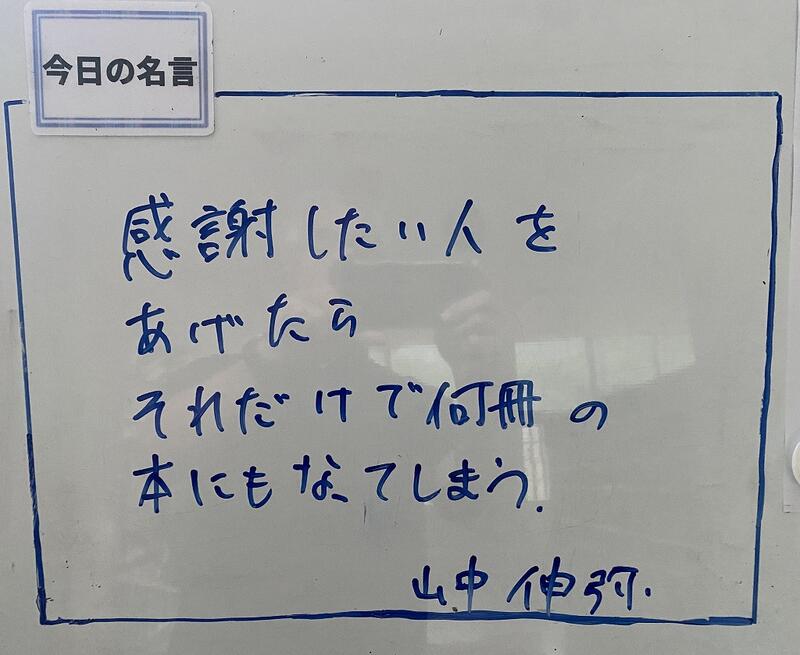 今日の名言
感謝したい人を
あげたら
それだけで何冊の
本にもなってしまう.
山中伸弥.